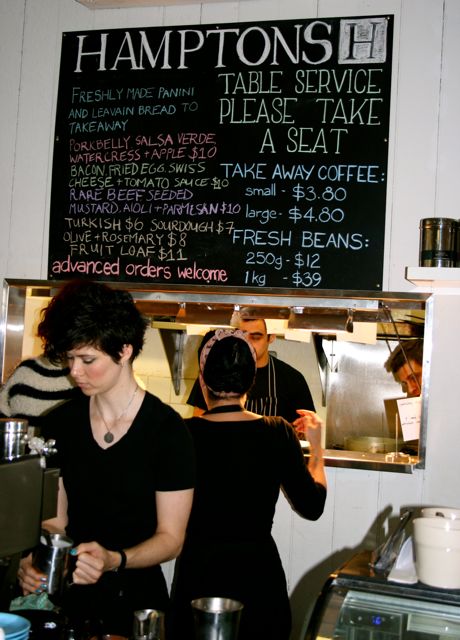 HAMPTONS H
FRESHLY MADE PANINI
AND LEAVAIN BREAD TO
TAKEAWAY
PORKBELLY SALSA VERDE
WATERCRESS + APPLE $10
BACON FRIED EGG. SWISS
CHEESE + TOMATO SAUCE $10
RARE BEEF SEEDED
MUSTARD. AIOLI + PARMESAN $10
TURKISH $6 SOURDOUGH $7
OLIVE + ROSEMARY $8
FRUIT LOAF $11
advanced orders welcome
TABLE SERVICE
PLEASE TAKE
A SEAT
TAKE AWAY COFFEE:
small - $3.80
large - $4.80
FRESH BEANS:
250g - $12
1kg - $39